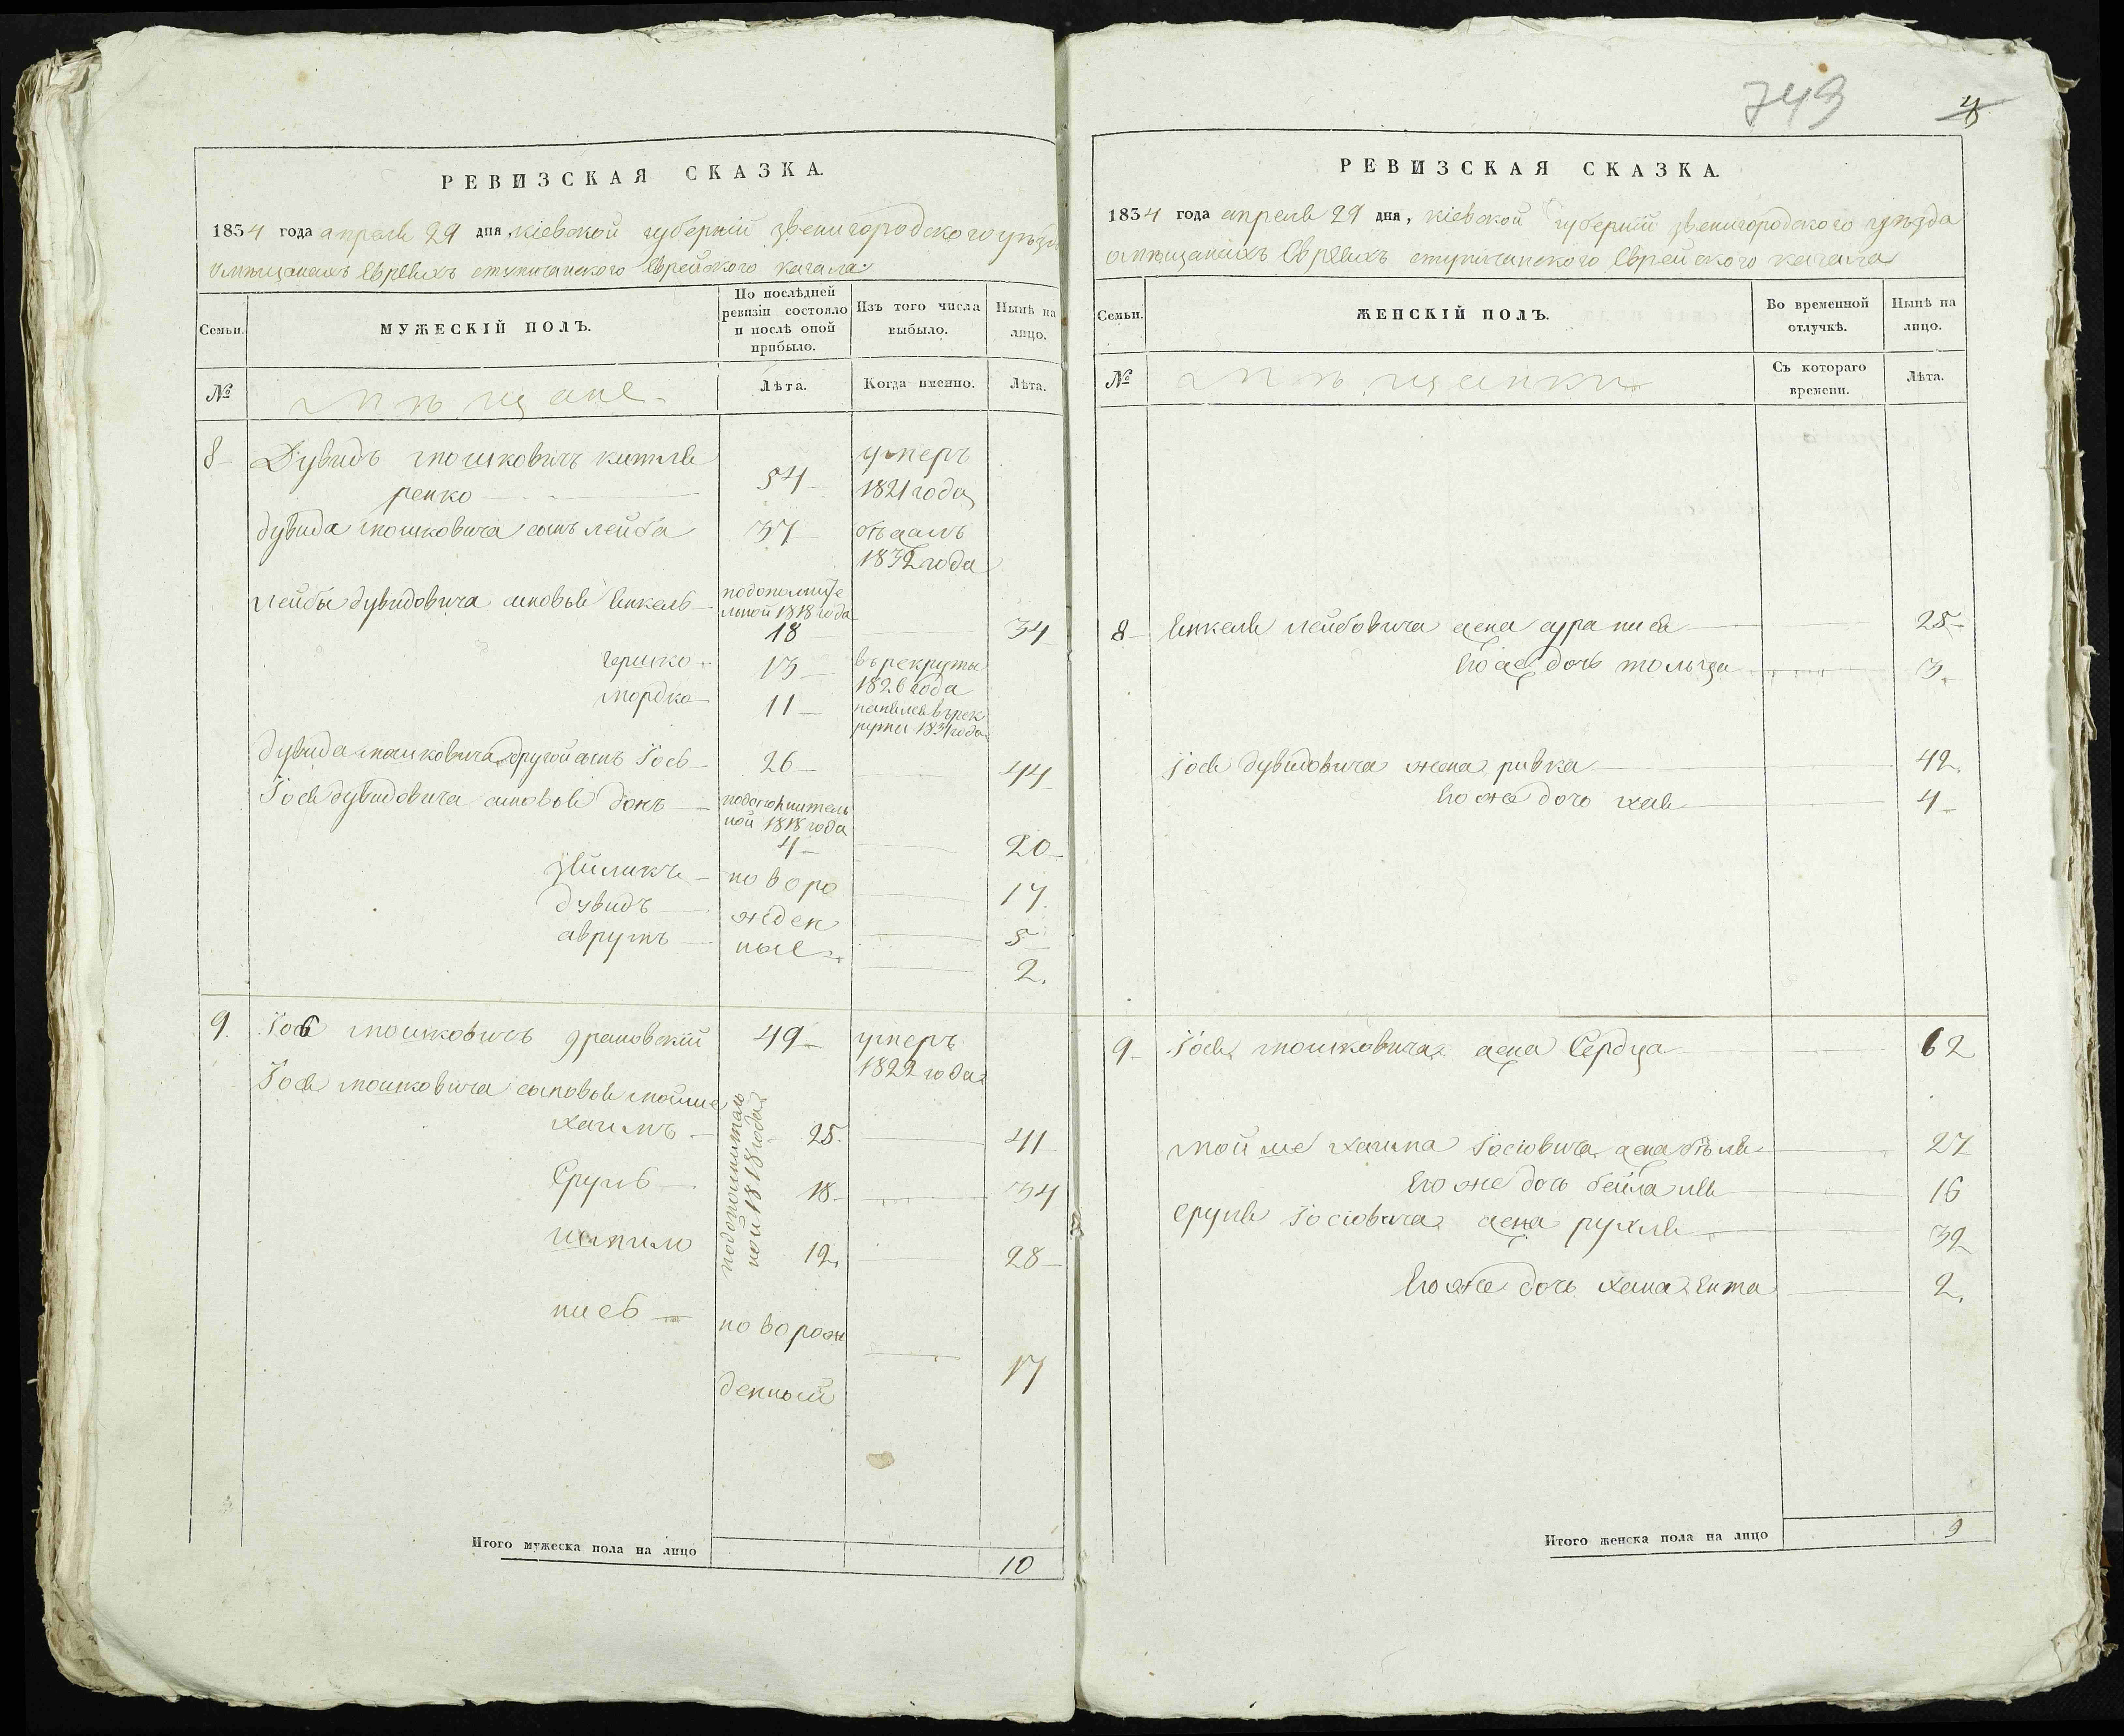 РЕВИЗСКАЯ СКАЗКА.
1834 года апреля 29 дня, кіевской губерніи звенигородского уезда
омѣщанахъ Евреяхъ Еврейского кагала
Семьи.
МУЖЕСКІЙ ПОЛЪ.
По послѣдней ревизіи состояло и послѣ оной прибыло.
Изъ того числа выбыло.
Нынѣ на лицо.
№
мѣщане
Лѣта.
Когда именно.
Лѣта.
8 Дувидъ мошковичъ
ренко 54 умеръ 1821 года
дувида мошковича сынъ лейба 37 1832 года
лейбы дувидовича сыновья Янкель подополните
льной 1818 года
18 34
гершко 13 въ рекруты
1826 года
мордко 11 въ рек
руты 1831 года
дувида мошковича другой сынъ Іось 26 44
Іося дувидовича сыновья подополнитель
ной 1818 года
4 20
зейликъ новоро 17
дувидъ жден 5
аврумъ ные 2.
9. Іось мошковичъ 49 умеръ
1822 года
Іося мошковича сыновья мойше
хаимъ 25. подополнитель
ной 1818 года 41
Сруль 18 34
12. 28
новорож
денный 17
Итого мужеска пола на лицо 10
749
4
РЕВИЗСКАЯ СКАЗКА.
1834 года апреля 29 дня, кіевской губерніи звенигородского уѣзда
омѣщанахъ Евреяхъ Еврейского кагала
Семьи.
ЖЕНСКІЙ ПОЛЪ.
Во временной отлучкѣ.
Нынѣ на лицо.
№
мѣщанки
Съ котораго времени.
Лѣта.
8 Янкеля лейбовича жена 25
Егоже дочь 3
Іося дувидовича жена ривка 42
Его же дочь хая 4
9 Іося мошковича жена 62
мойше хаима Іосіовича жена 27
Его же дочь бейла 16
Сруля Іосіовича жена рухля 32
Его же дочь хана Ента 2.
Итого женска пола на лицо 9